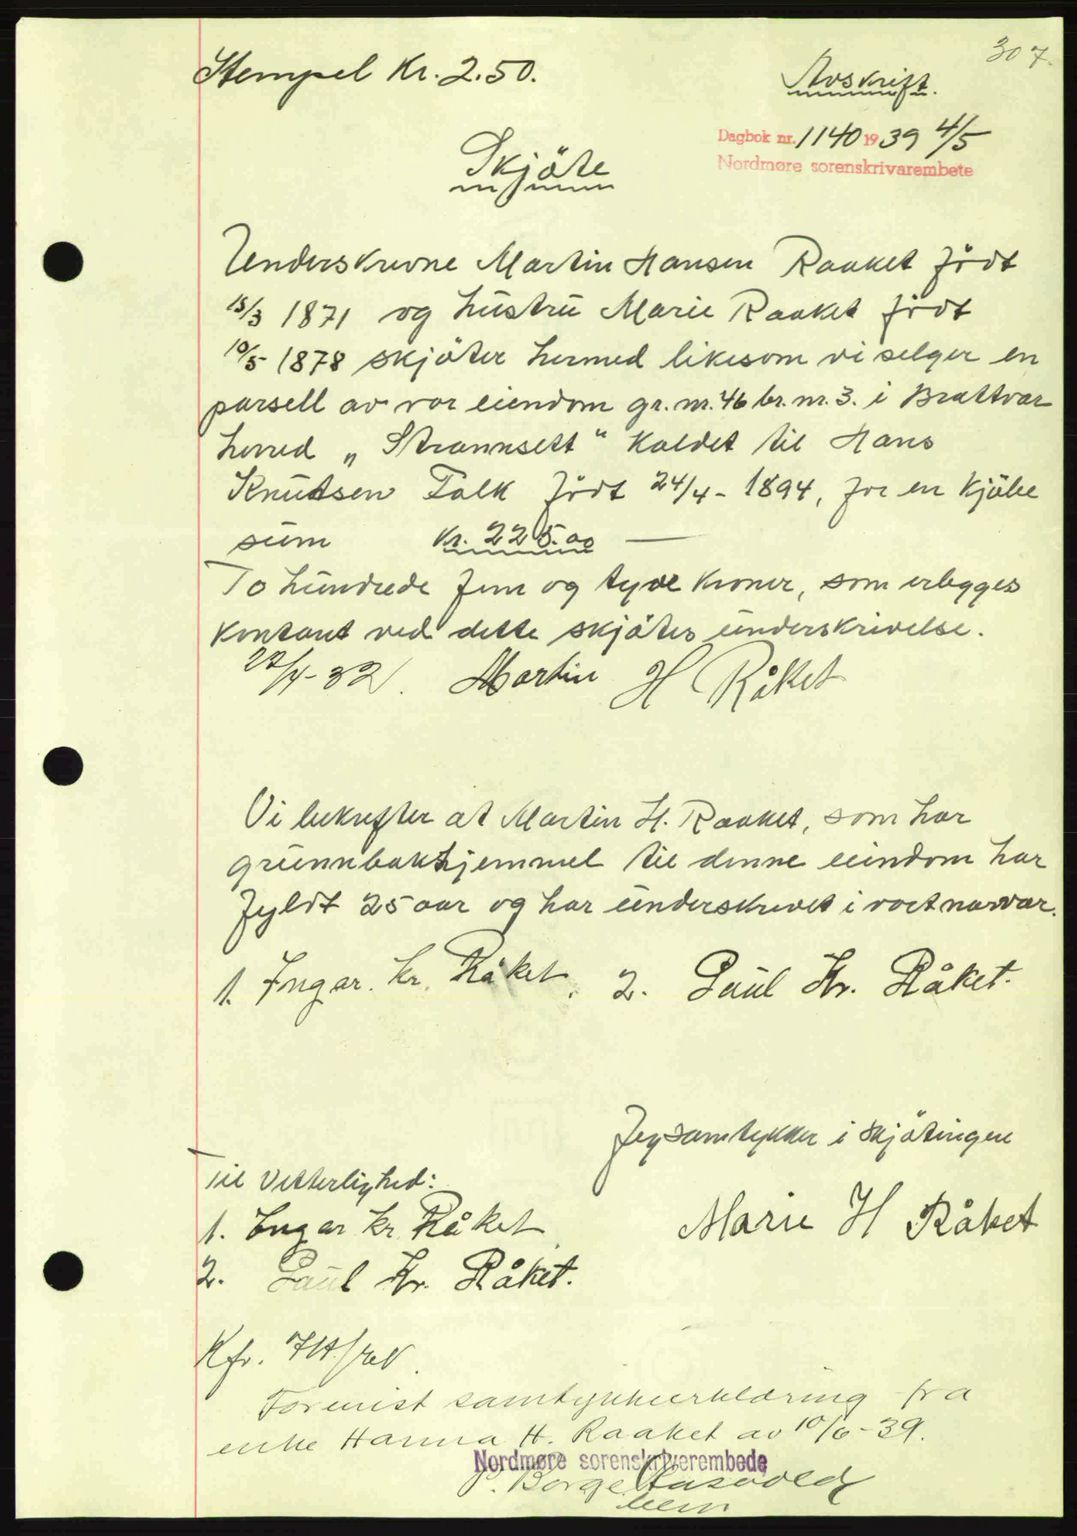 307.
Stempel Kr. 2.50.
Avskrift.
Dagbok nr. 1140 1939 4/5
Nordmøre sorenskrivarembete
Skjöte
Underskrevne Martin Hansen Raaket født
15/3 1871 og hustru Marie Raaket født
10/5 1878 skjöter hermed likesom vi selger en
parsell av vor eiendom gr. nr. 46 br. nr. 3. i Brattvær
herred „Strannsett“ kaldet til Hans
Knutsen Falk født 24/4 - 1894, for en kjöbe
sum Kr. 225.00 —
To hundrede fem og tyve kroner, som erlegges
kontant ved dette skjötes underskrivelse.
/4-32. Martin H Råket
Vi bekrefter at Martin H. Raaket, som har
grunnbokhjemmel til denne eiendom har
fyldt 25 aar og har underskrevet i vort nærvær.
1. Ingar. Kr. Råket. 2. Paul Kr. Råket.
Jeg samtykker i skjötingen
Til Vitterlighed:
1. Ingar Kr Råket Marie H Råket
2. Paul Kr. Råket.
Kfr.
Forevist samtykkeerklæring fra
enke Hanna H. Raaket av 10/6-39.
Nordmøre sorenskriverembede
P. Borge